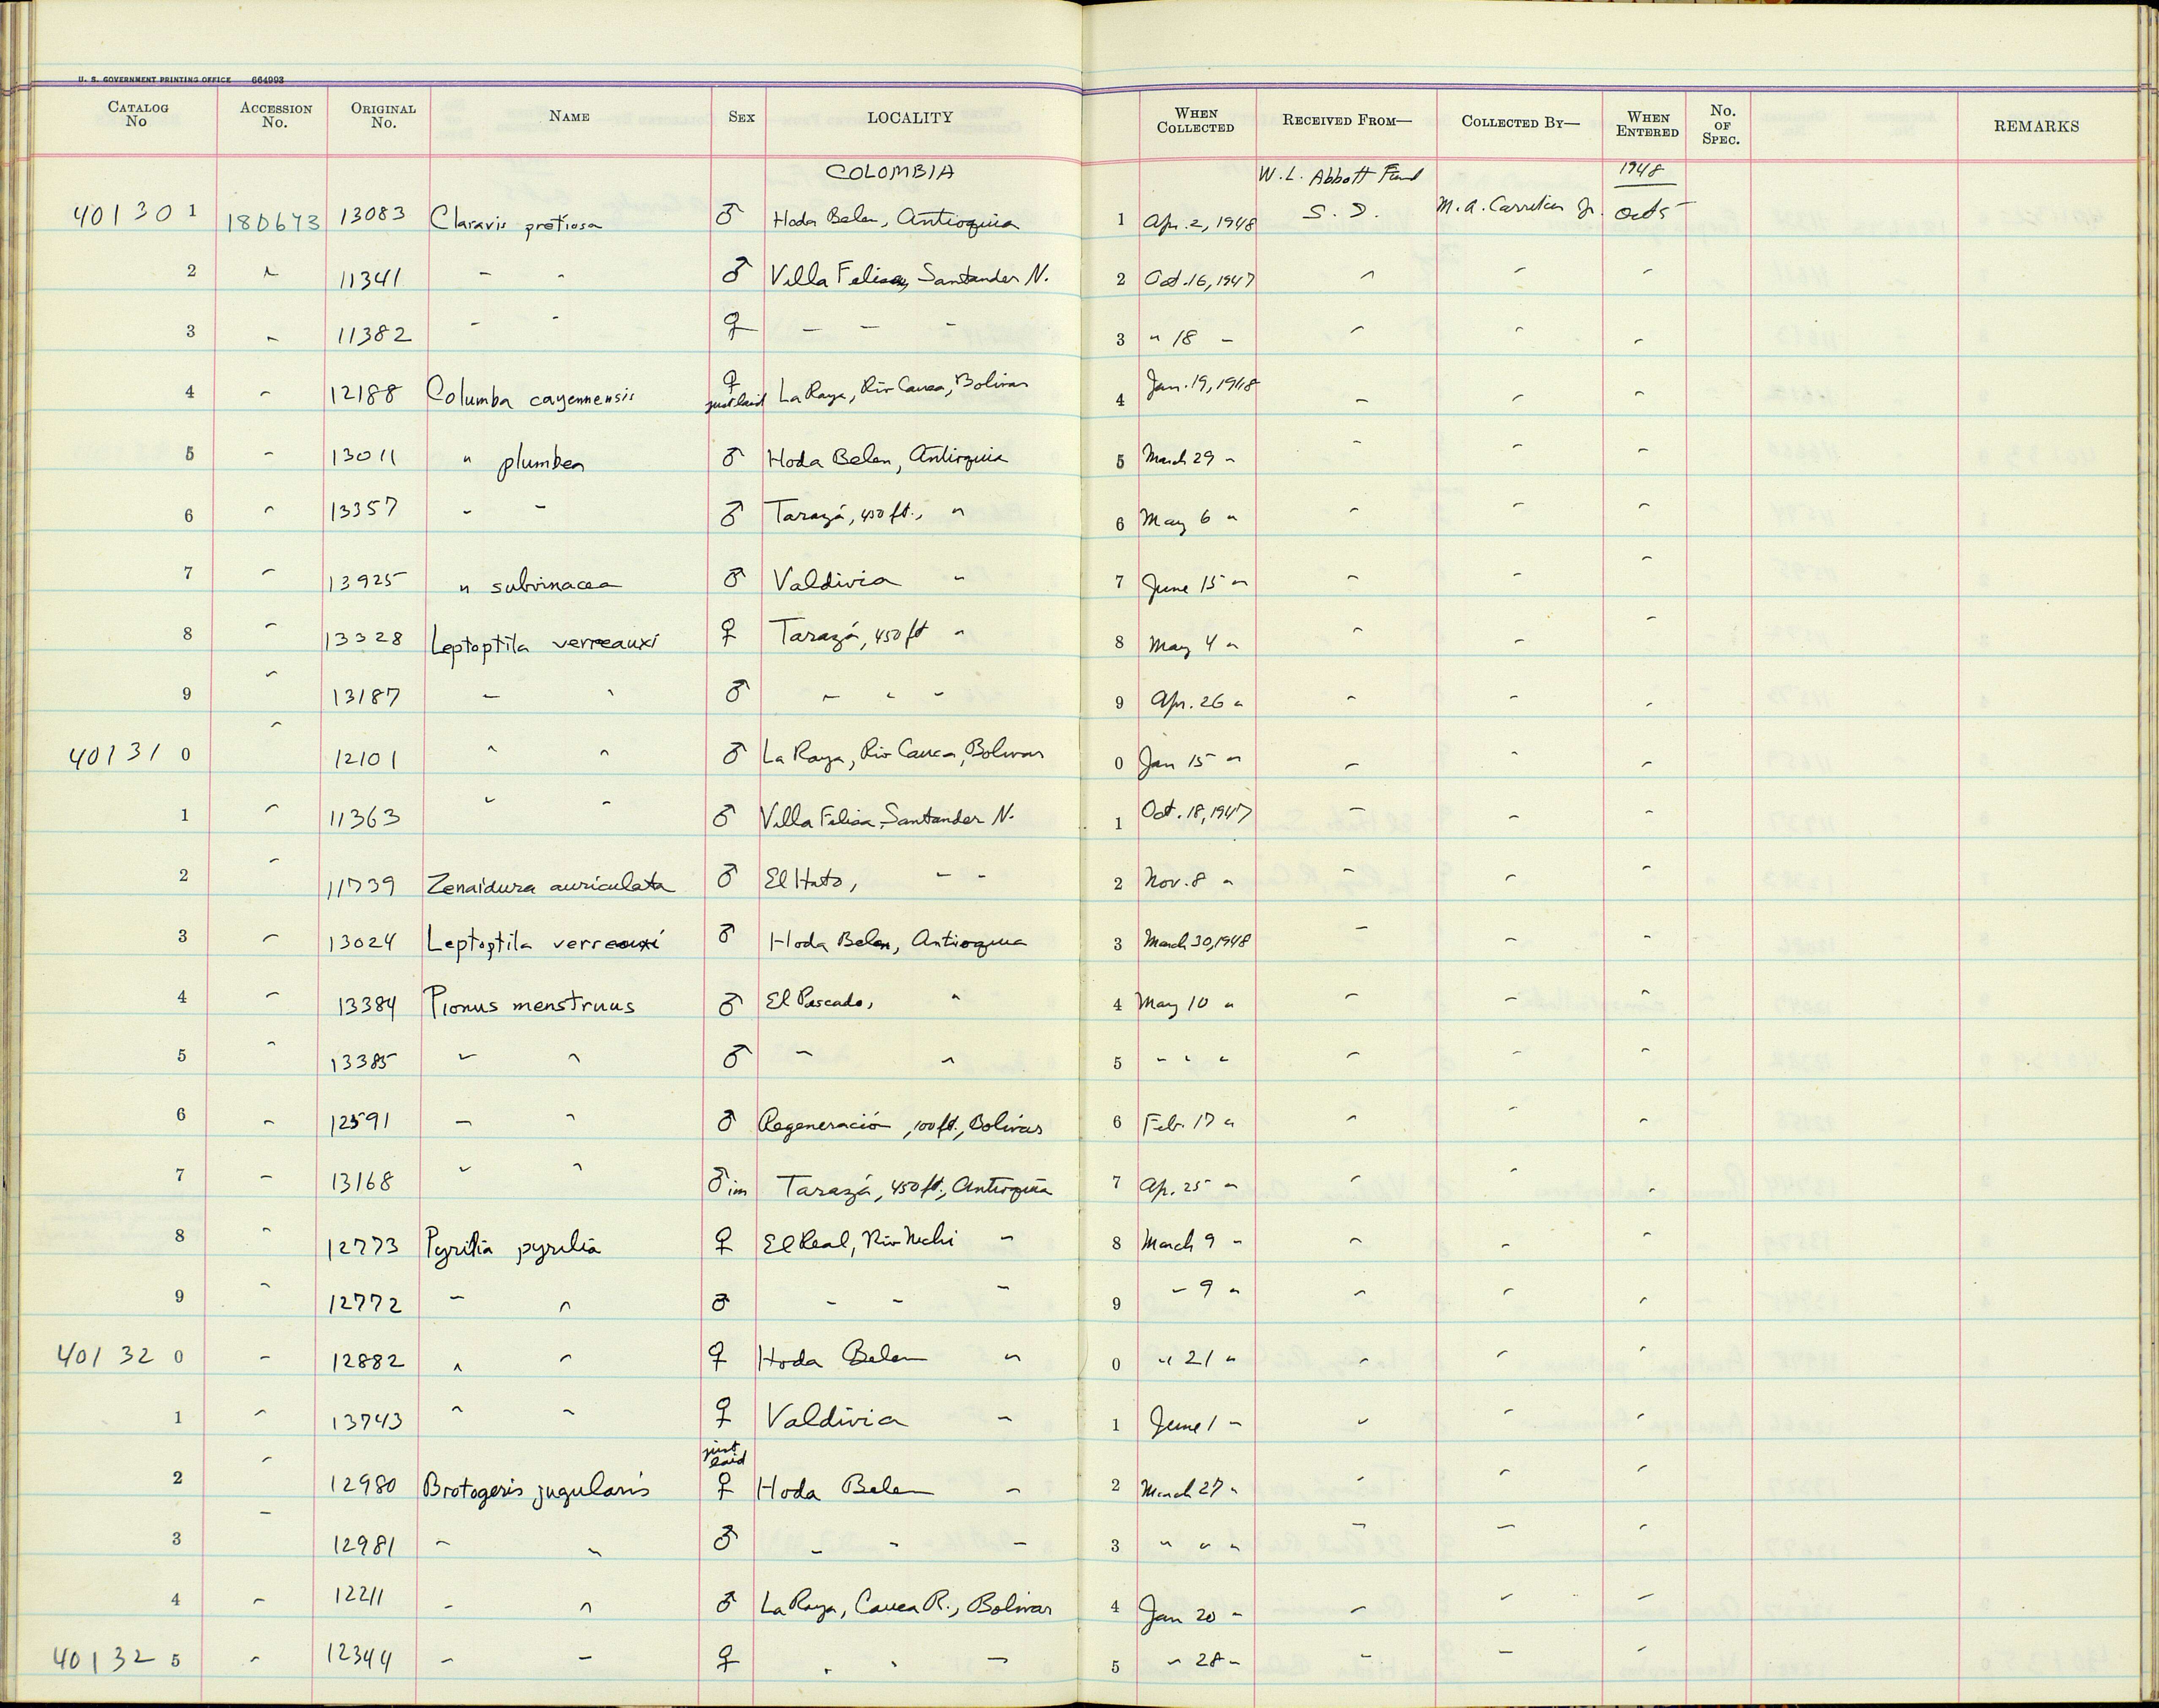 U. S. GOVERNMENT PRINTING OFFICE 664993
CATALOG No ACCESSION No. ORIGINAL No. NAME SEX LOCALITY WHEN COLLECTED RECEIVED FROM— COLLECTED BY— WHEN ENTERED No. OF SPEC. REMARKS
COLOMBIA W. L. Abbott Fund 1948
401301 180673 13083 Claravis pretiosa ♂ Hoda Belen, Antioquia 1 Apr. 2, 1948 S. I. M. A. Carriker Jr. Oct 5
2 " 11341 " " ♂ Villa Felisa, Santander N. 2 Oct. 16, 1947 " " "
3 " 11382 " " ♀ " " " 3 " 18 " " " "
4 " 12188 Columba cayennensis ♀ just laid La Raya, Rio Cauca, Bolivar 4 Jan. 19, 1948 " " "
5 " 13011 " plumbea ♂ Hoda Belen, Antioquia 5 March 29 " " " "
6 " 13357 " " ♂ Tarazá, 450 ft., " 6 May 6 " " " "
7 " 13925 " subvinacea ♂ Valdivia " 7 June 15 " " " "
8 " 13328 Leptoptila verreauxi ♀ Tarazá, 450 ft " 8 May 4 " " " "
9 " 13187 " " ♂ " " " 9 Apr. 26 " " " "
401310 " 12101 " " ♂ La Raya, Rio Cauca, Bolivar 0 Jan 15 " " " "
1 " 11363 " " ♂ Villa Felisa, Santander N. 1 Oct. 18, 1947 " " "
2 " 11739 Zenaidura auriculata ♂ El Hato, " " 2 Nov. 8 " " " "
3 " 13024 Leptoptila verreauxi ♂ Hoda Belen, Antioquia 3 March 30, 1948 " " "
4 " 13384 Pionus menstruus ♂ El Pescado, " 4 May 10 " " " "
5 " 13385 " " ♂ " " 5 " " " " " "
6 " 12591 " " ♂ Regeneració, 100 ft., Bolivar 6 Feb. 17 " " " "
7 " 13168 " " ♂ im Tarazá, 450 ft., Antioquia 7 Ap. 25 " " " "
8 " 12773 Pyrilia pyrilia ♀ El Real, Rio Nechi " 8 March 9 " " " "
9 " 12772 " " ♂ " " " 9 " 9 " " " "
401320 " 12882 " " ♀ Hoda Belen " 0 " 21 " " " "
1 " 13743 " " ♀ Valdivia " 1 June 1 " " " "
2 " 12980 Brotogeris jugularis just laid ♀ Hoda Belen " 2 March 27 " " " "
3 " 12981 " " ♂ " " " 3 " " " " " "
4 " 12211 " " ♂ La Raya, Cauca R., Bolivar 4 Jan 20 " " " "
401325 " 12344 " " ♀ " " " 5 " 28 " " " "